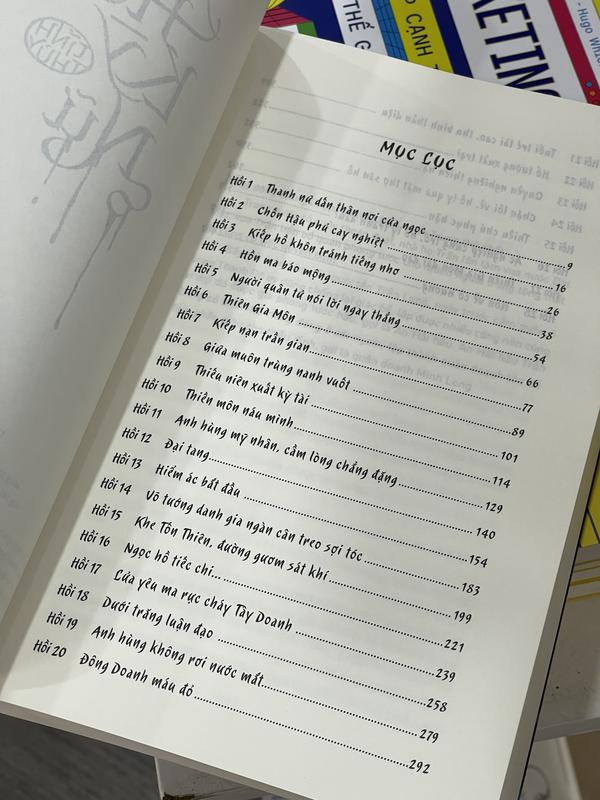 THẾ G
CẠNH T
KETING
- Hugo Whic
MỤC LỤC
Hồi 1 Thanh nữ dấn thân nơi cửa ngọc ... 9
Hồi 2 Chốn Hậu phủ cay nghiệt ... 16
Hồi 3 Kiếp hồ khôn tránh tiếng nhơ ... 26
Hồi 4 Hồn ma báo mộng ... 38
Hồi 5 Người quân tử nói lời ngay thẳng ... 54
Hồi 6 Thiên Gia Môn ... 66
Hồi 7 Kiếp nạn trần gian ... 77
Hồi 8 Giữa muôn trùng nanh vuốt ... 89
Hồi 9 Thiếu niên xuất kỳ tài ... 101
Hồi 10 Thiền môn náu mình ... 114
Hồi 11 Anh hùng mỹ nhân, cầm lòng chẳng đặng ... 129
Hồi 12 Đại tang ... 140
Hồi 13 Hiểm ác bắt đầu ... 154
Hồi 14 Võ tướng danh gia ngàn cân treo sợi tóc ... 183
Hồi 15 Khe Tồn Thiên, đường gươm sát khí ... 199
Hồi 16 Ngọc hồ tiếc chi... ... 221
Hồi 17 Lửa yêu ma rực cháy Tây Doanh ... 239
Hồi 18 Dưới trăng luận đạo ... 258
Hồi 19 Anh hùng không rơi nước mắt ... 279
Hồi 20 Đông Doanh máu đỏ ... 292